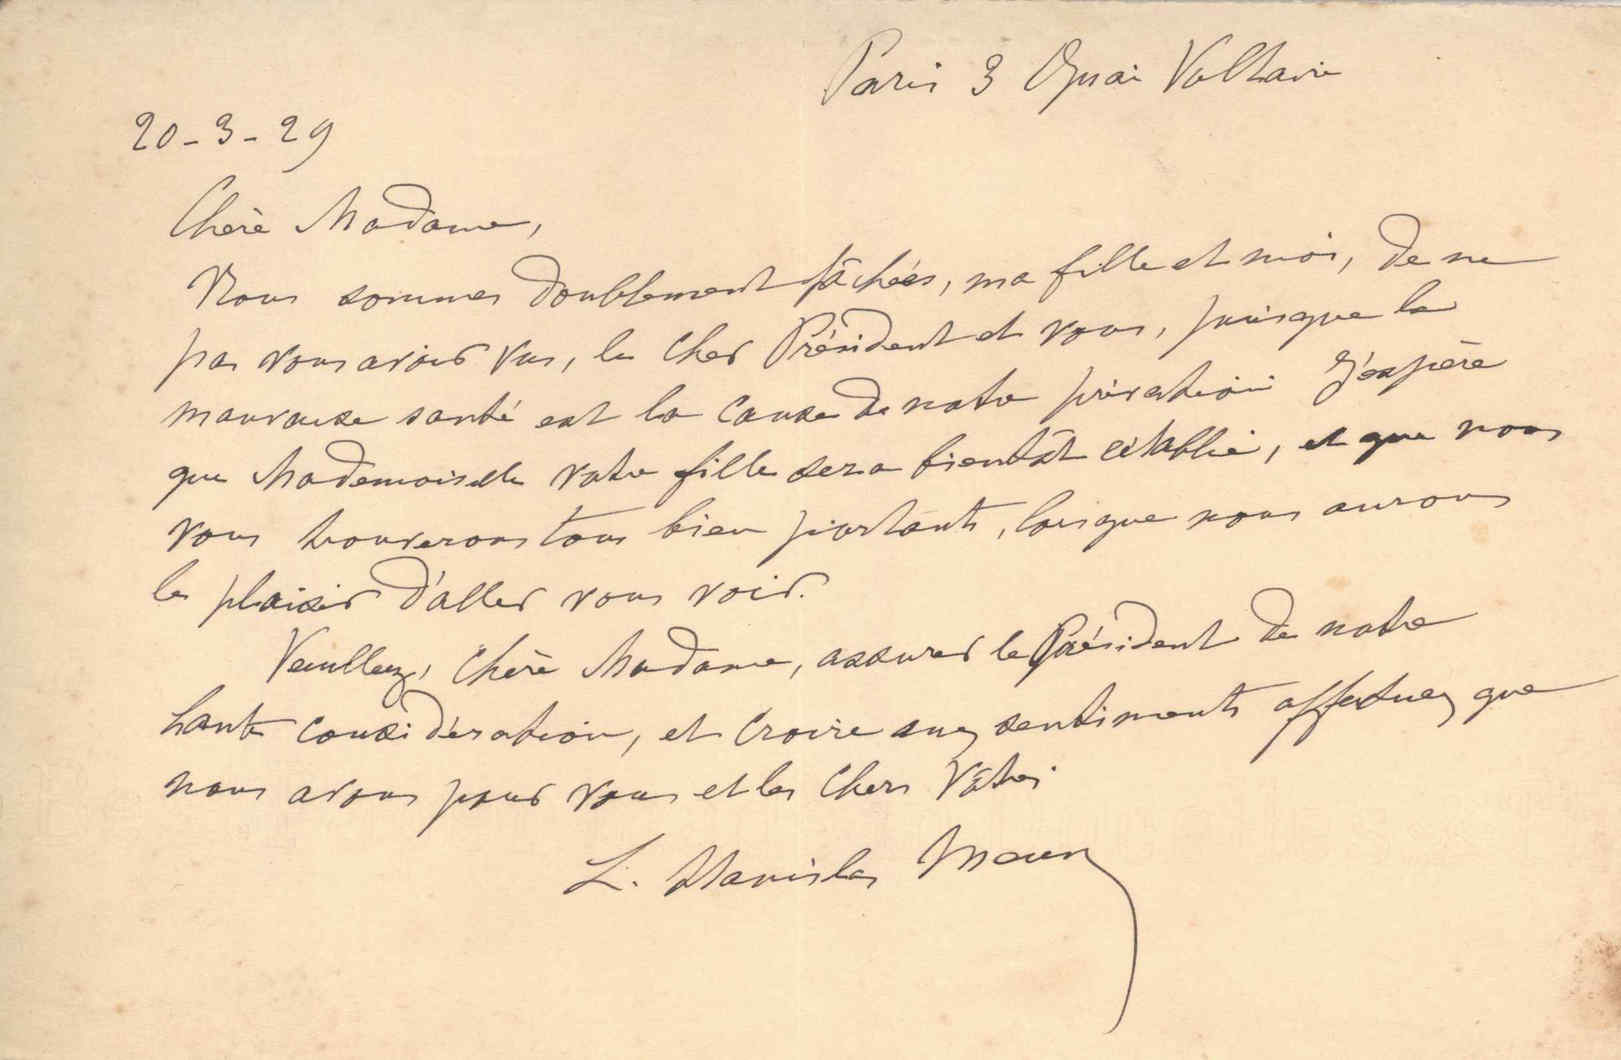 Paris 3 Quai Voltaire
20-3-29
Chère Madame,
Nous sommes doublement fâchées, ma fille et moi, de ne
pas vous avoir vus, le cher Président et vous, puisque la
mauvaise santé est la cause de notre privation J'espère
que Mademoiselle votre fille sera bientôt rétablie, et que nous
vous trouverons tous bien portants, lorsque nous aurons
le plaisir d'aller vous voir.
Veuillez, chère Madame, assurer le Président de notre
haute considération, et croire aux sentiments affectueux que
nous avons pour vous et les chers Vôtres
L. Stanislas